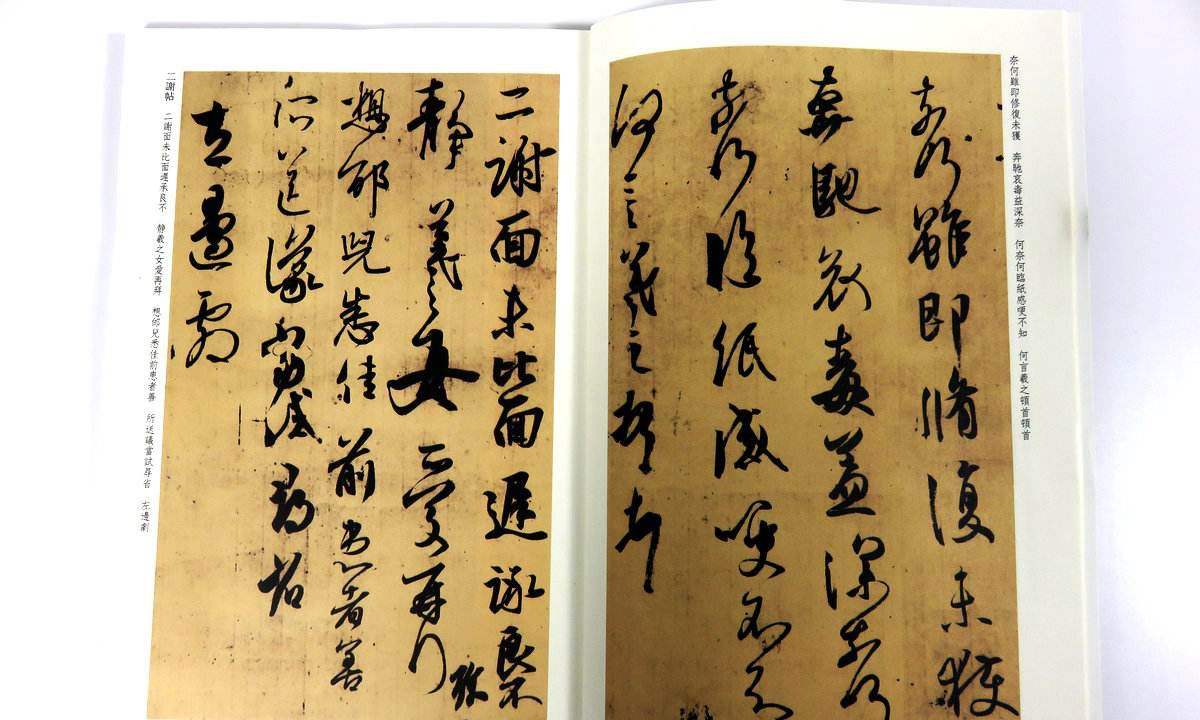 奈何雖即修復未獲 奔馳哀毒益深奈 何奈何臨紙感哽不知 何言羲之頓首頓首
奈何雖即脩復未獲
奔馳哀毒益深奈何
奈何臨紙感哽不知
何言羲之頓首頓首
二謝面未比面遲詠良不
靜羲之女愛再拜
想邰兒悉佳前患者善
所送議當試尋省
左邊劇
二謝帖 二謝面未比面遲承良不 靜羲之女愛再拜 想邰兒悉佳前患者善 所送議當試尋省 左邊劇